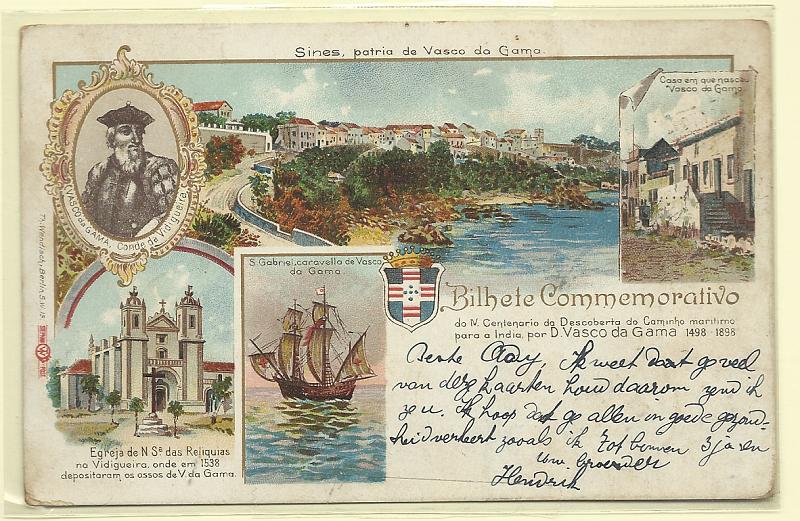 Sines, patria de Vasco da Gama.
Casa em que nasceu
Vasco da Gama
VASCO da GAMA, Conde da Vidigueira
Th. Wendisch, Berlin S.W. 13
S. Gabriel, caravella de Vasco
da Gama
Bilhete Commemorativo
do IV. Centenario da Descoberta do Caminho maritimo
para a India, por D. Vasco da Gama 1498-1898
Egreja de N Sª das Reliquias
na Vidigueira, onde em 1538
depositaram os ossos de V. da Gama.
Beste Ik weet dat ge veel
van deze kaarten houd daarom zend ik
ze u. Ik hoop dat ge allen in goede gezond-
heid verkeert zooals ik Tot binnen 3 jaren
Uw
Hendrik